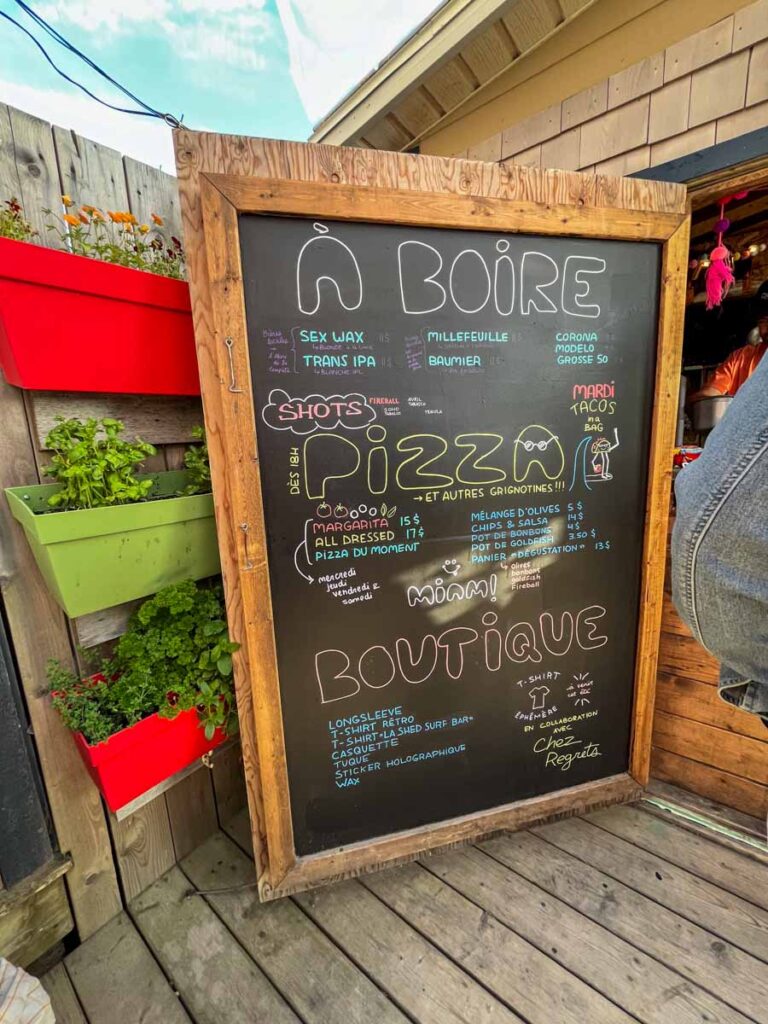 À BOIRE
SEX WAX
TRANS IPA
MILLEFEUILLE
BAUMIER
CORONA
MODELO
GROSSE 50
SHOTS
FIREBALL
TEQUILA
MARDI
TACOS
in a
BAG
DÈS 18H
PIZZA
→ ET AUTRES GRIGNOTINES!!!
MARGARITA 15$
ALL DRESSED 17$
PIZZA DU MOMENT
mercredi
jeudi
vendredi &
samedi
MÉLANGE D'OLIVES 5$
CHIPS & SALSA 4$
POT DE BONBONS 4$
POT DE GOLDFISH 3.50$
PANIER "DÉGUSTATION" 13$
olives
bonbons
goldfish
Fireball
MIAM!
BOUTIQUE
LONGSLEEVE
T-SHIRT RÉTRO
T-SHIRT "LA SHED SURF BAR"
CASQUETTE
TUQUE
STICKER HOLOGRAPHIQUE
WAX
T-SHIRT
ÉPHÉMÈRE
à venir
cet été
EN COLLABORATION
AVEC
Chez
Regrets